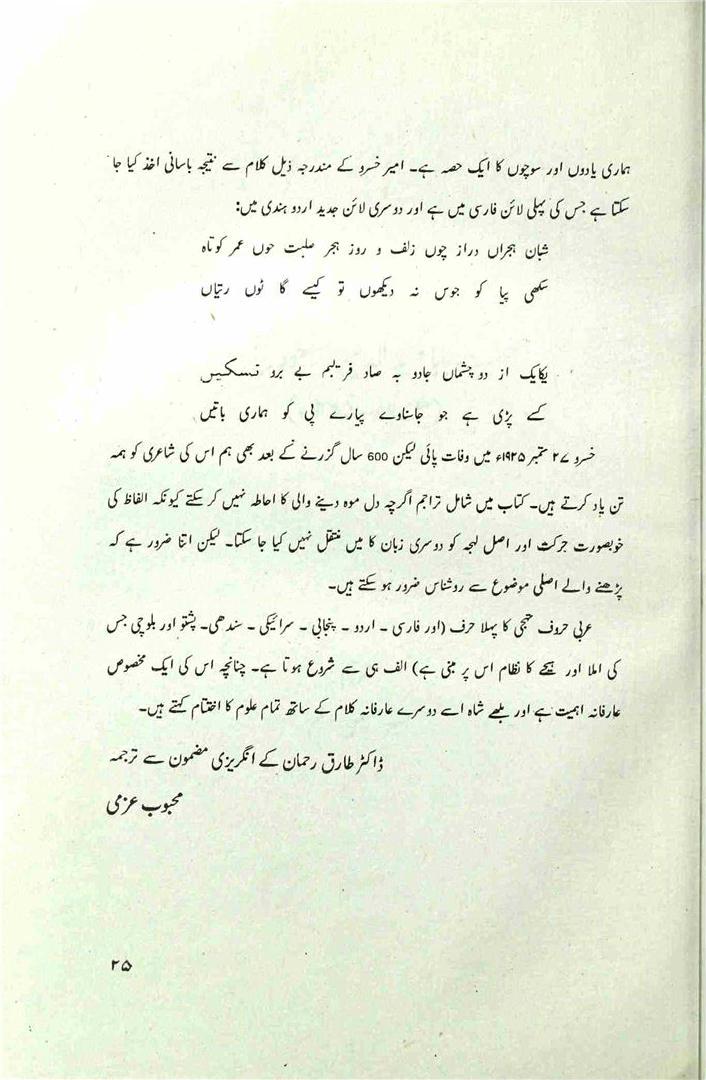 ہماری یادوں اور سوچوں کا ایک حصہ ہے۔ امیر خسرو کے مندرجہ ذیل کلام سے نتیجہ باسانی اخذ کیا جا
سکتا ہے جس کی پہلی لائن فارسی میں ہے اور دوسری لائن جدید اردو ہندی میں:
شبان ہجراں دراز چوں زلف و روز ہجر صلبت حوں عمر کوتاہ
سکھی پیا کو جوس نہ دیکھوں تو کیسے گا ٹوں رتیاں
یکایک از دو چشماں جادو بہ صاد فریبم بے برو تسکیں
کسے پڑی ہے جو جاسناوے پیارے پی کو ہماری باتیں
خسرو ۲۷ ستمبر ۱۹۲۵ء میں وفات پائی لیکن 600 سال گزرنے کے بعد بھی ہم اس کی شاعری کو ہمہ
تن یاد کرتے ہیں۔ کتاب میں شامل تراجم اگرچہ دل موہ دینے والی کا احاطہ نہیں کر سکتے کیونکہ الفاظ کی
خوبصورت حرکت اور اصل لہجہ کو دوسری زبان کا میں منتقل نہیں کیا جا سکتا۔ لیکن اتنا ضرور ہے کہ
پڑھنے والے اصلی موضوع سے روشناس ضرور ہو سکتے ہیں۔
عربی حروف تہجی کا پہلا حرف (اور فارسی ۔ اردو ۔ پنجابی ۔ سرائیکی ۔ سندھی۔ پشتو اور بلوچی جس
کی املا اور ہیجے کا نظام اس پر مبنی ہے) الف ہی سے شروع ہوتا ہے۔ چنانچہ اس کی ایک مخصوص
عارفانہ اہمیت ہے اور بلھے شاہ اسے دوسرے عارفانہ کلام کے ساتھ تمام علوم کا اختتام کہتے ہیں۔
ڈاکٹر طارق رحمان کے انگریزی مضمون سے ترجمہ
محبوب عزمی
۲۵